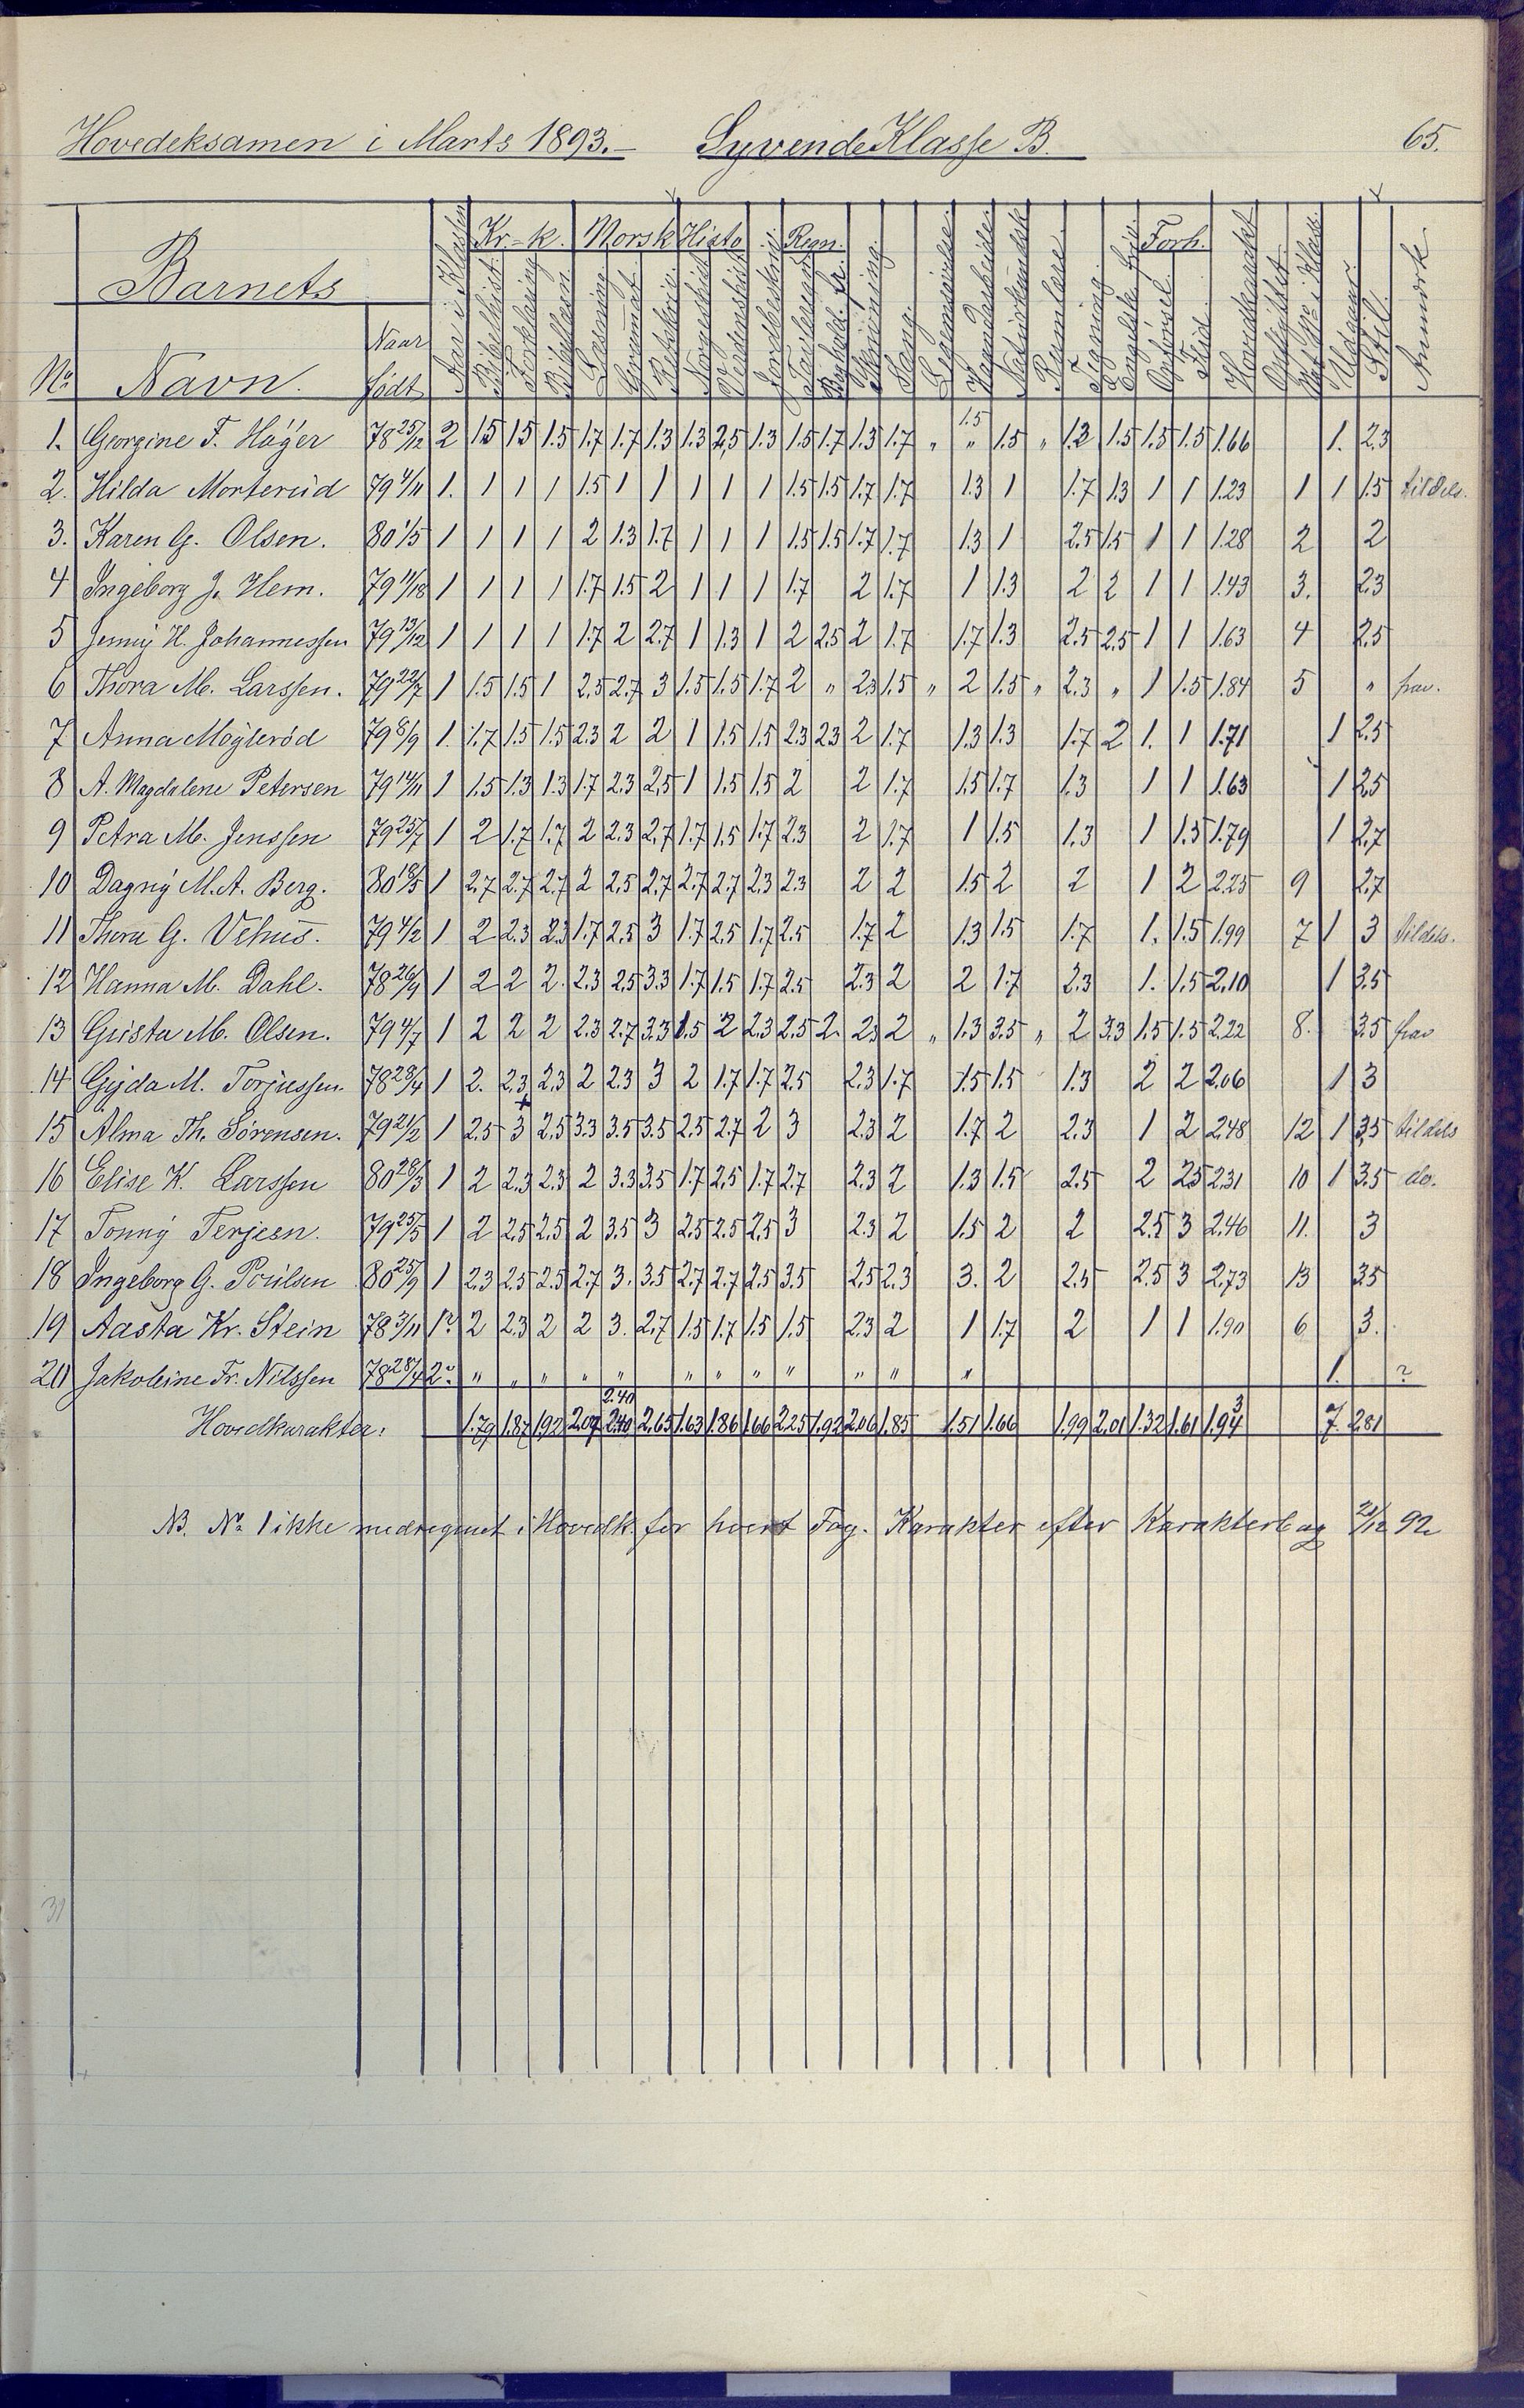 Hovedeksamen i Marts 1893.– Syvende Klasse B. 65.
Kr-k. Norsk Histo Regn. Forh.
Barnets
Aar i Klassen Bibelhist. Forklaring Bibellæsn. Læsning Grammat. Norgeshist Verdenshist Jordbeskri. Tavleregn Skrivning Sang Legemsøvelse. Haandarbeide Naturkundsk Rumlære Tegning Engelsk Opførsel. Flid. Hovedkarakt Opflyttet Udgaar. Stil. Anmærk
Naar
No Navn. født
1. Georgine F. Höÿer 78 25/12 2 1.5 1.5 1.5 1.7 1.7 1.3 1.3 2,5 1.3 1.5 1.7 1.3 1.7 „ 1.5 „ 1.5 „ 1.2 1.5 1.5 1.5 1.66 1. 2.3
2. Hilda Morterud 79 4/11 1. 1 1 1 1.5 1 1 1 1 1 1.5 1.5 1.7 1.7 1.3 1 1.7 1.3 1 1 1.23 1 1 1.5 tildels.
3. Karen G. Olsen. 80 1/5 1 1 1 1 2 1.3 1.7 1 1 1 1.5 1.5 1.7 1.7 1.3 1 2.5 1.5 1 1 1.28 2 2
4 Ingeborg J. Hem. 79 11/18 1 1 1 1 1.7 1.5 2 1 1 1 1.7 2 1.7 1 1.3 2 2 1 1 1.43 3. 2.3
5 Jenny H. Johannessen 79 13/12 1 1 1 1 1.7 2 2.7 1 1.3 1 2 2.5 2 1.7 1.7 1.3 2.5 2.5 1 1 1.63 4 2.5
6 Thora M. Larssen. 79 22/7 1 1.5 1.5 1 2.5 2.7 3 1.5 1.5 1.7 2 „ 2.3 1.5 „ 2 1.5 „ 2.3 „ 1 1.5 1.84 5 „ frav.
7 Anna Möÿleröd 79 8/9 1. 1.7 1.5 1.5 2.3 2 2 1 1.5 1.5 2.3 2.3 2 1.7 1.3 1.3 1.7 2 1. 1 1.71 1 2.5
8 A. Magdalene Petersen 79 14/11 1 1.5 1.3 1.3 1.7 2.3 2,5 1 1.5 1.5 2 2 1.7 1.5 1.7 1.3 1 1 1.63 1 2.5
9 Petra M. Jenssen 79 25/7 1 2 1.7 1.7 2 2.3 2.7 1.7 1.5 1.7 2.3 2 1.7 1 1.5 1.3 1 1.5 1.79 1 2.7
10 Dagny M.A. Berg. 80 18/5 1 2.7 2.7 2.7 2 2.5 2.7 2.7 2.7 2.3 2.3 2 2 1.5 2 2 1 2 2.23 9 2.7
11 Thora G. Vehus. 79 4/2 1 2 2.3 2.3 1.7 2.5 3 1.7 2.5 1.7 2.5 1.7 2 1.3 1.5 1.7 1. 1.5 1.99 7 1 3 tildels.
12 Hanna M. Dahl. 78 26/9 1 2 2 2. 2.3 2.5 3.3 1.7 1.5 1.7 2.5 2.3 2 2 1.7 2.3 1. 1.5 2.10 1 3.5
13 Gusta M. Olsen. 79 4/7 1 2 2 2 2.3 2.7 3.3 1.5 2 2.3 2.5 2. 2.3 2 „ 1.3 3.5 „ 2 3.3 1.5 1.5 2.22 8. 3.5 frav
14 Gyda M. Torjussen. 78 28/4 1 2. 2.3 2.3 2 2.3 3 2 1.7 1.7 2.5 2.3 1.7 1.5 1.5 1.3 2 2 2.06 1 3
15 Alma Th. Sörensen. 79 21/2 1 2.5 3 2.5 3.3 3.5 3.5 2.5 2.7 2 3 2.3 2 1.7 2 2.3 1 2 2.48 12 1 3.5 tildels
16 Elise K. Larssen 80 28/3 1 2 2.3 2.3 2 3.3 3.5 1.7 2.5 1.7 2.7 2.3 2 1.3 1.5 2.5 2 2.5 2.31 10 1 3.5 do.
17 Tonny Terjesn. 79 25/5 1 2 2.5 2.5 2 3.5 3 2.5 2.5 2.5 3 2.3 2 1.5 2 2 2.5 3 2.46 11. 3
18 Ingeborg G. Poulsen 80 25/9 1 2.3 2.5 2.5 2.7 3. 3.5 2.7 2.7 2.5 3.5 2.5 2.3 3. 2 2.5 2.5 3 2.73 13 3.5
19 Aasta Kr. Stein 78 3/11 1? 2 2.3 2 2 3. 2.7 1.5 1.7 1.5 1.5 2.3 2 1 1.7 2 1 1 1.90 6 3.
20 Jakobine Fr. Nilssen 78 28/4 2? „ „ „ „ „ „ „ „ „ „ „ „ 1. ?
2.40 3
Hovedkarakter: 1.79 1.87 1.92 2.07 2.40 2.65 1.63 1.86 1.66 2.25 1.92 2.06 1.85 1.51 1.66 1.99 2.01 1.32 1.61 1.94 7. 2.81
NB. No 1 ikke medregnet i Hovedk. for hvert Fag. Karakter efter Karakterbog 21/12 92
31